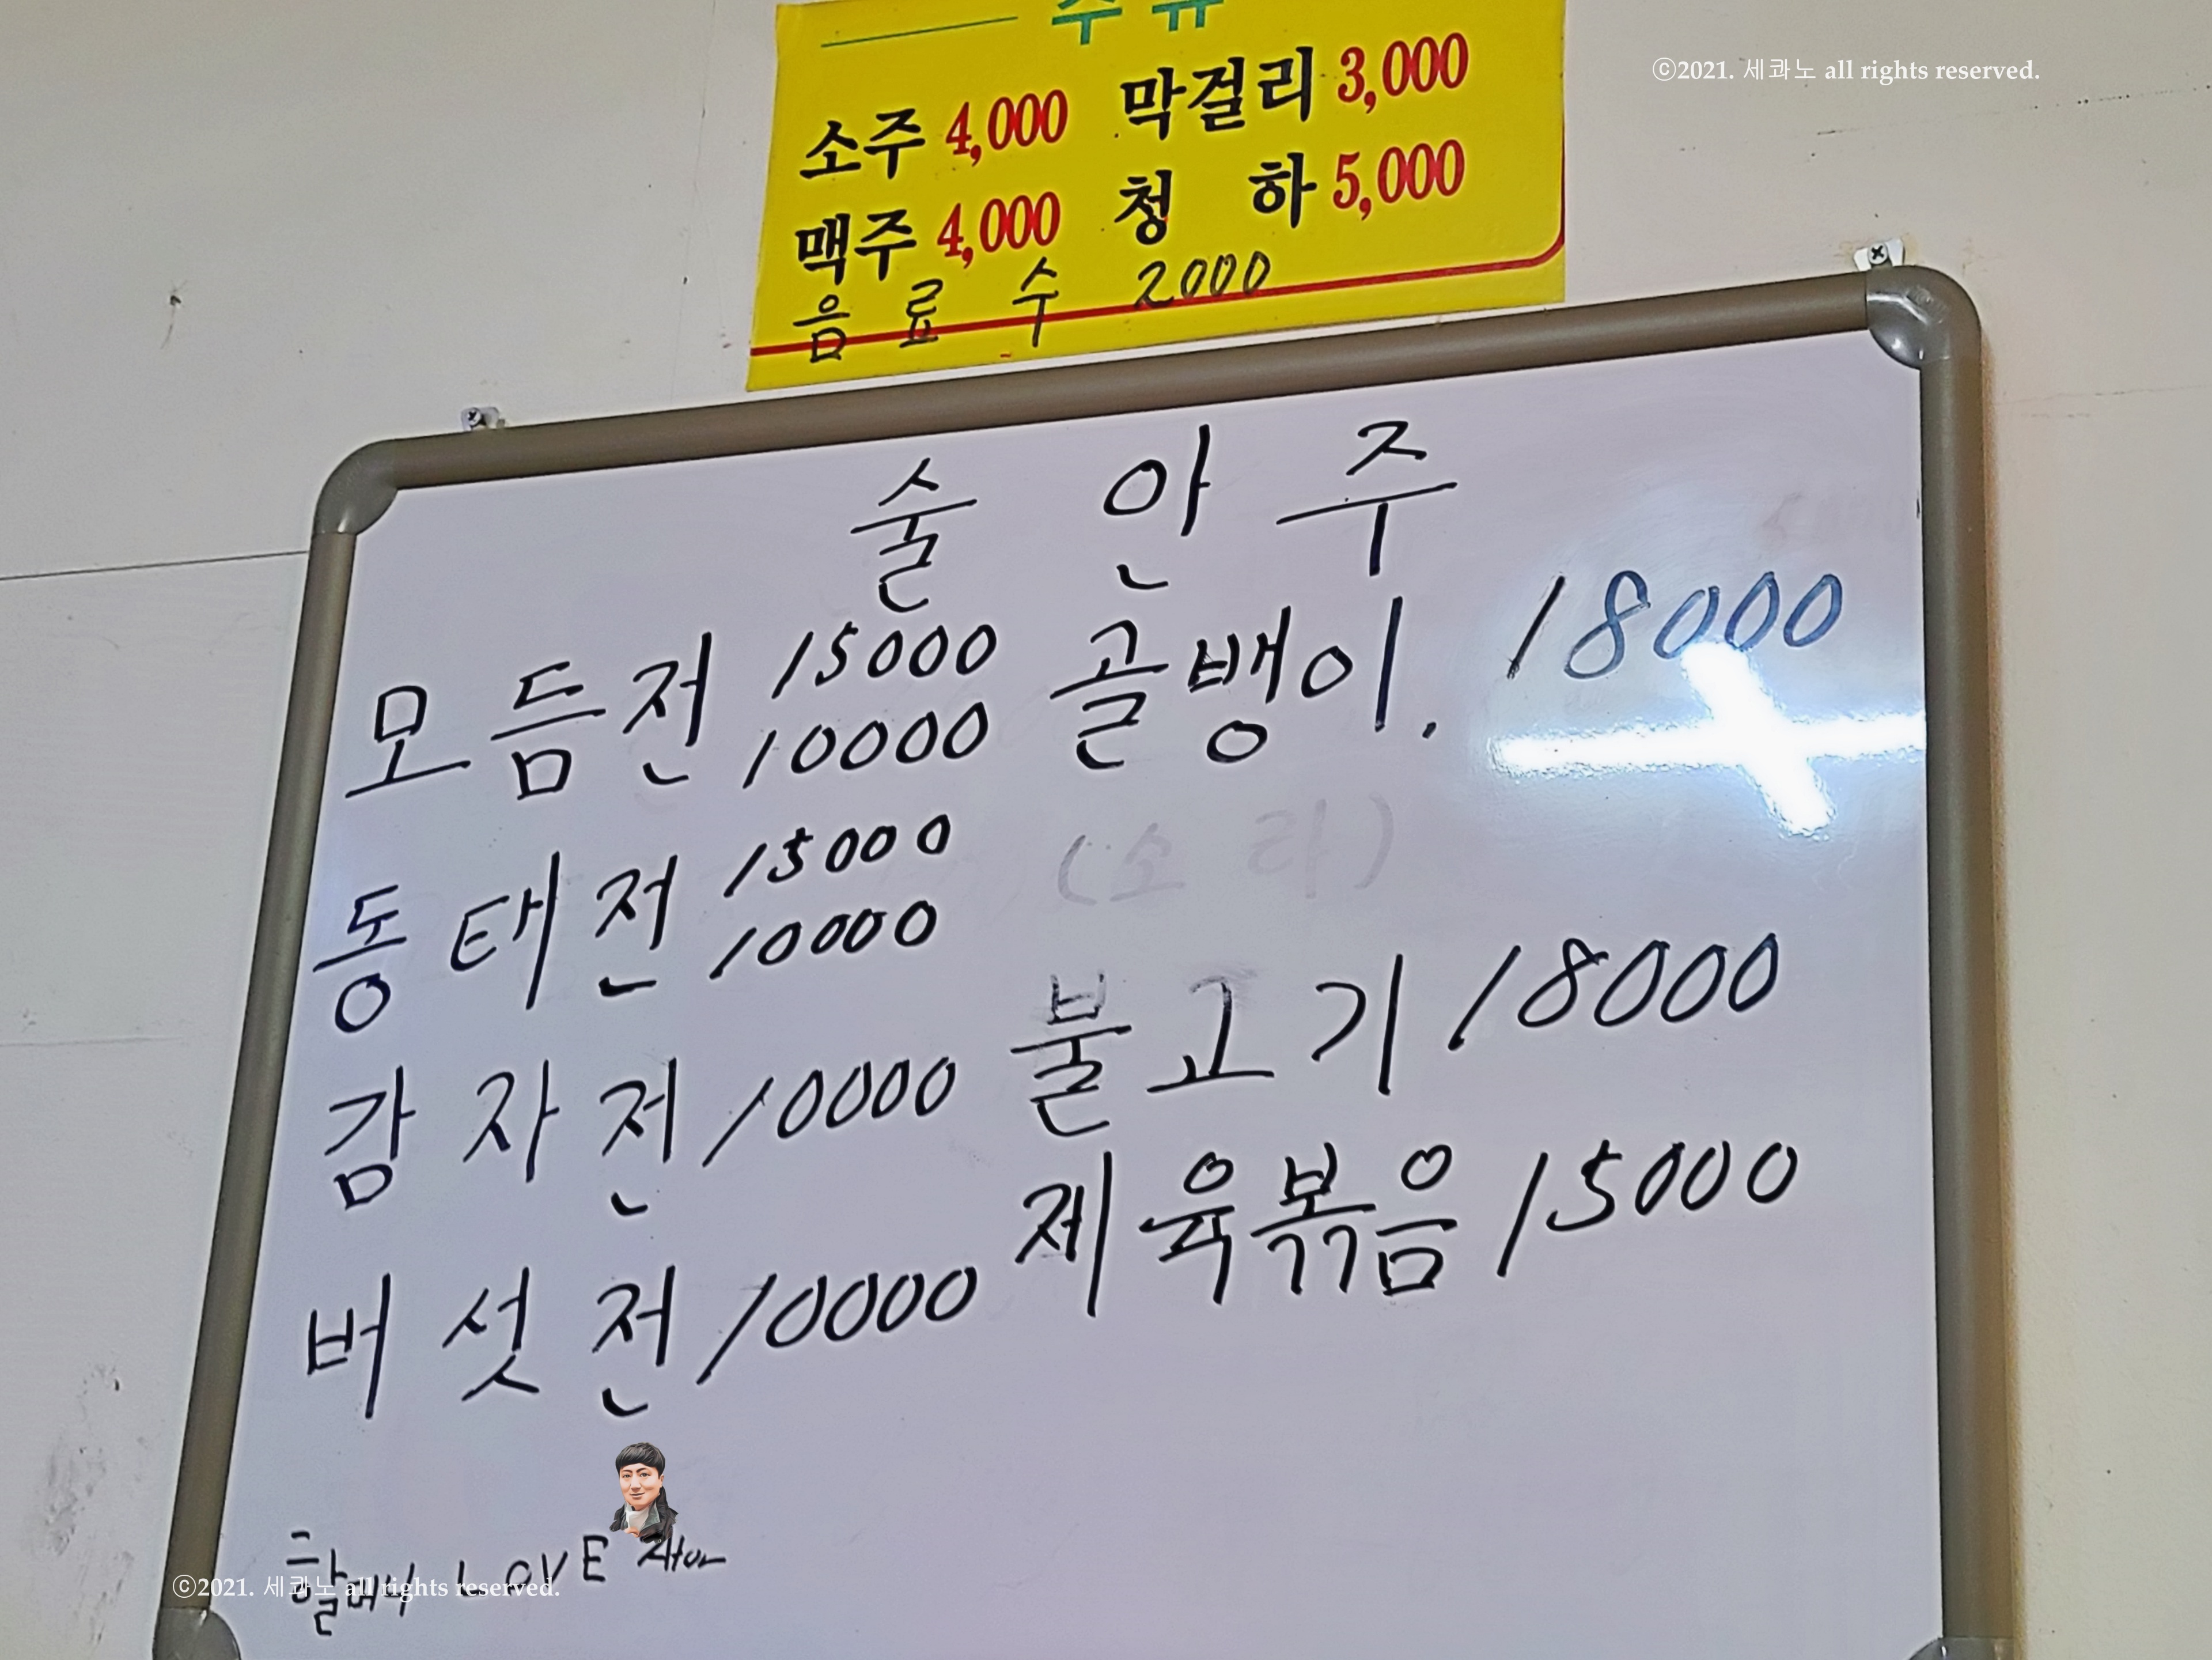 주류
ⓒ2021. 세콰노 all rights reserved.
소주 4,000 막걸리 3,000
맥주 4,000 청 하 5,000
음 료 수 2000
술 안 주
모듬전 15000 골뱅이. 18000
10000
동태전 15000 (소 라)
10000
감자전 10000 불고기 18000
버섯전 10000 제육볶음 15000
할머니 LOVE
ⓒ2021. 세콰노 all rights reserved.